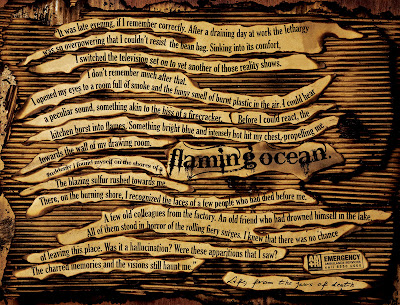 "It was late evening, if I remember correctly. After a draining day at work the lethargy
was so overpowering that I couldn't resist the bean bag. Sinking into its comfort,
I switched the television set on to yet another of those reality shows.
I don't remember much after that.
I opened my eyes to a room full of smoke and the funny smell of burnt plastic in the air. I could hear
a peculiar sound, something akin to the hiss of a firecracker. Before I could react, the
kitchen burst into flames. Something bright blue and intensely hot hit my chest, propelling me
towards the wall of my drawing room.
Suddenly I found myself on the shores of a
flaming ocean.
The blazing sulfur rushed towards me.
There, on the burning shore, I recognized the faces of a few people who had died before me.
A few old colleagues from the factory. An old friend who had drowned himself in the lake.
All of them stood in horror of the rolling fiery surges. I knew that there was no chance
of leaving this place. Was it a hallucination? Were these apparitions that I saw?
The charred memories and the visions still haunt me."
EMERGENCY
Life, from the jaws of death